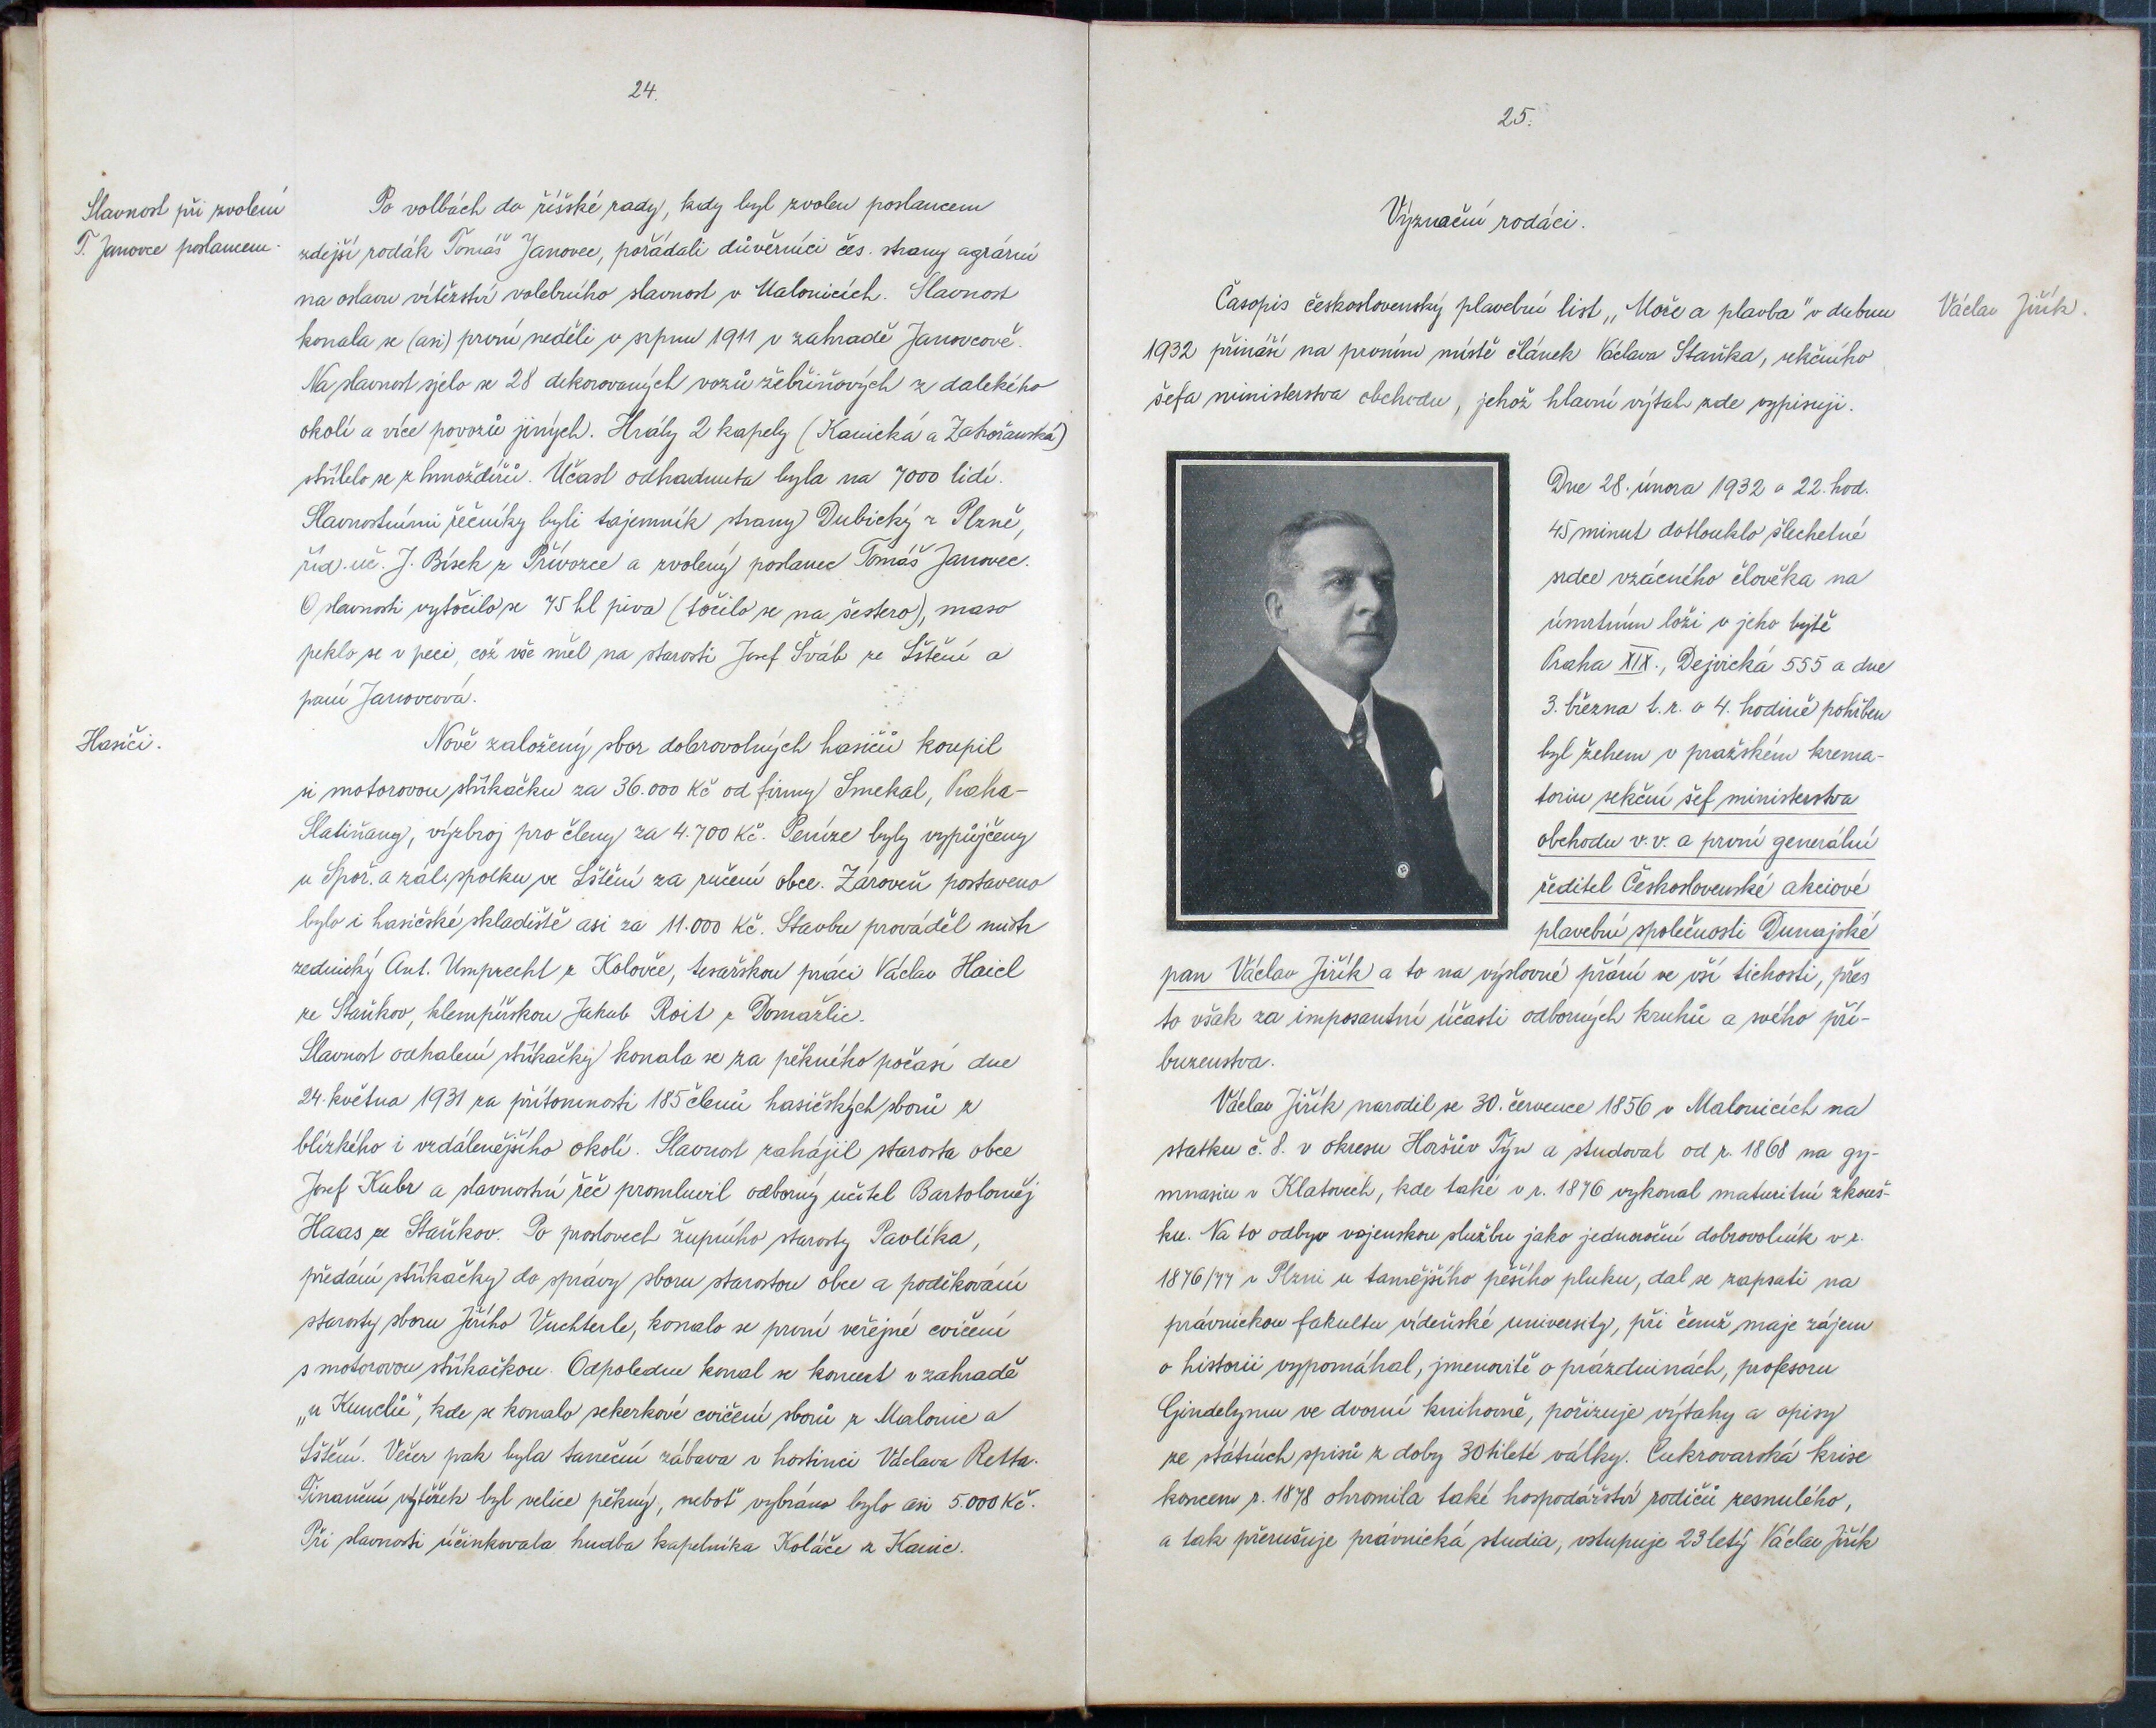 24.
Slavnost při zvolení
T. Janovce poslancem.
Po volbách do říšské rady, kdy byl zvolen poslancem
zdejší rodák Tomáš Janovec, pořádali důvěrníci čes. strany agrární
na oslavu vítězství volebního slavnost v Malonicích. Slavnost
konala se (asi) první neděli v srpnu 1911 v zahradě Janovcově.
Na slavnost sjelo se 28 dekorovaných vozů žebřiňových z dalekého
okolí a více povozů jiných. Hrály 2 kapely (Kanická a Zahořanská)
střílelo se z hmoždířů. Účast odhadnuta byla na 7000 lidí.
Slavnostními řečníky byli tajemník strany Dubický z Plzně,
říd. uč. J. Bísek z Přívozce a zvolený poslanec Tomáš Janovec.
O slavnosti vytočilo se 75 hl piva (točilo se na šestero), maso
peklo se v peci, což vše měl na starosti Josef Šváb ze Lštění a
paní Janovcová.
Hasiči.
Nově založený sbor dobrovolných hasičů koupil
si motorovou stříkačku za 36.000 Kč od firmy Smekal, Praha-
Slatiňany, výzbroj pro členy za 4.700 Kč. Peníze byly vypůjčeny
u Spoř. a zál. spolku ve Lštění za ručení obce. Zároveň postaveno
bylo i hasičské skladiště asi za 11.000 Kč. Stavbu prováděl mistr
zednický Ant. Umprecht z Kolovče, tesařskou práci Václav Haicl
ze Staňkov, klempířskou Jakub Roit z Domažlic.
Slavnost odhalení stříkačky konala se za pěkného počasí dne
24. května 1931 za přítomnosti 185 členů hasičských sborů z
blízkého i vzdálenějšího okolí. Slavnost zahájil starosta obce
Josef Kubr a slavnostní řeč promluvil odborný učitel Bartoloměj
Haas ze Staňkov. Po proslovech župního starosty Pavlíka,
předání stříkačky do správy sboru starostou obce a poděkování
starosty sboru Jiřího Vuchterle, konalo se první veřejné cvičení
s motorovou stříkačkou. Odpoledne konal se koncert v zahradě
„u Kunclů", kde se konalo sekerkové cvičení sborů z Malonic a
Lštění. Večer pak byla taneční zábava v hostinci Václava Retta.
Finanční výtěžek byl velice pěkný, neboť vybráno bylo asi 5.000 Kč.
Při slavnosti účinkovala hudba kapelníka Koláče z Kanic.
25.
Význační rodáci.
Václav Jiřík.
Časopis československý plavební list „Moře a plavba" v dubnu
1932 přináší na prvním místě článek Václava Staňka, sekčního
šefa ministerstva obchodu, jehož hlavní výtah zde vypisuji.
Dne 28. února 1932 o 22. hod.
45 minut dotlouklo šlechetné
srdce vzácného člověka na
úmrtním loži v jeho bytě
Praha XIX., Dejvická 555 a dne
3. března t. r. o 4. hodině pohřben
byl žehem v pražském krema-
toriu sekční šef ministerstva
obchodu v. v. a první generální
ředitel Československé akciové
plavební společnosti Dunajské
pan Václav Jiřík a to na výslovné přání ve vší tichosti, přes
to však za imposantní účasti odborných kruhů a svého pří-
buzenstva.
Václav Jiřík narodil se 30. července 1856 v Malonicích na
statku č. 8. v okresu Horšův Týn a studoval od r. 1868 na gy-
mnasiu v Klatovech, kde také v r. 1876 vykonal maturitní zkouš-
ku. Na to odbyv vojenskou službu jako jednoroční dobrovolník v r.
1876/77 v Plzni u tamějšího pěšího pluku, dal se zapsati na
právnickou fakultu vídeňské university, při čemž maje zájem
o historii vypomáhal, jmenovitě o prázdninách, profesoru
Gindelymu ve dvorní knihovně, pořizuje výtahy a opisy
ze státních spisů z doby 30tileté války. Cukrovarská krise
koncem r. 1878 ohromila také hospodářství rodičů zesnulého,
a tak přerušuje právnická studia, vstupuje 23letý Václav Jiřík